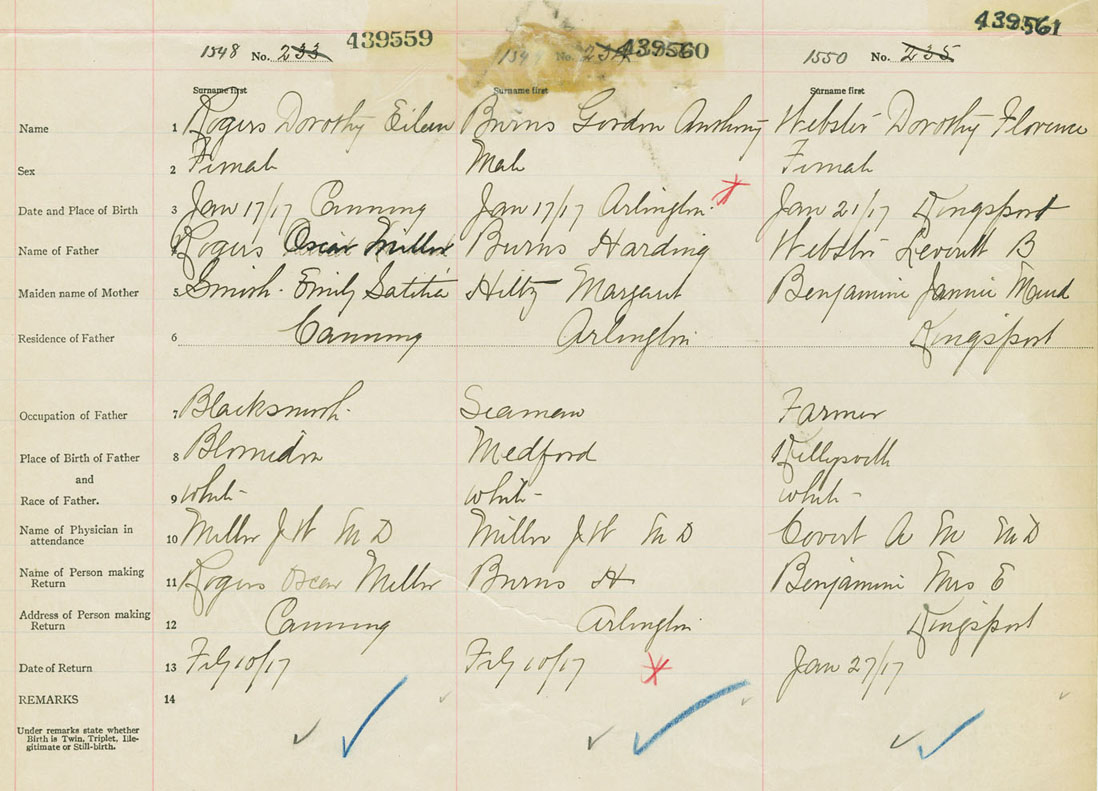 439561
1548 No. 233 439559 1549 No. 234 439560 1550 No. 235
Surname first Surname first Surname first
Name 1 Rogers Dorothy Eileen Burns Gordon Anthony Webster Dorothy Florence
Sex 2 Female Male Female
Date and Place of Birth 3 Jan 17/17 Canning Jan 17/17 Arlington Jan 21/17 Kingsport
Name of Father 4 Rogers Oscar Miller Burns Harding Webster Leverett B
Maiden name of Mother 5 Smith Emily Hiltz Margaret Benjamin Jannie Maud
Residence of Father 6 Canning Arlington Kingsport
Occupation of Father 7 Blacksmith. Seaman Farmer
Place of Birth of Father 8 Blomidon Medford
and
Race of Father. 9 White White White
Name of Physician in
attendance 10 Miller J W M D Miller J W M D Covert A M M D
Name of Person making
Return 11 Rogers Oscar Miller Burns H Benjamin Mrs E
Address of Person making
Return 12 Canning Arlington Kingsport
Date of Return 13 Feby 10/17 Feby 10/17 Jan 27/17
REMARKS 14
Under remarks state whether
Birth is Twin, Triplet, Ille-
gitimate or Still-birth.